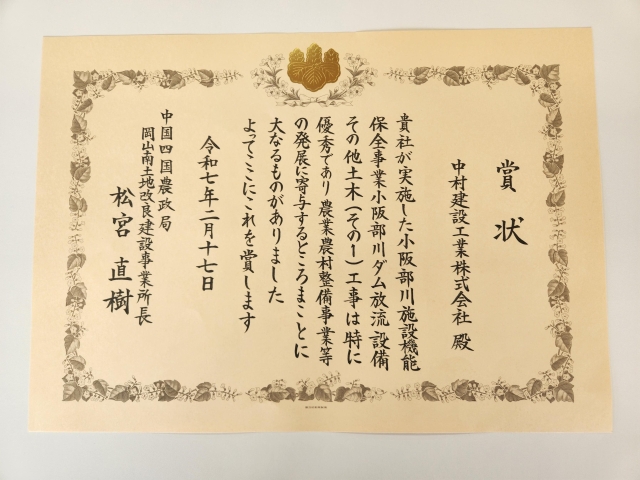 賞状
中村建設工業株式会社 殿
貴社が実施した小阪部川施設機能
保全事業小阪部川ダム放流設備
その他土木(その1)工事は特に
優秀であり 農業農村整備事業等
の発展に寄与するところまことに
大なるものがありました
よってここにこれを賞します
令和七年二月十七日
中国四国農政局
岡山南土地改良建設事業所長
松宮 直樹